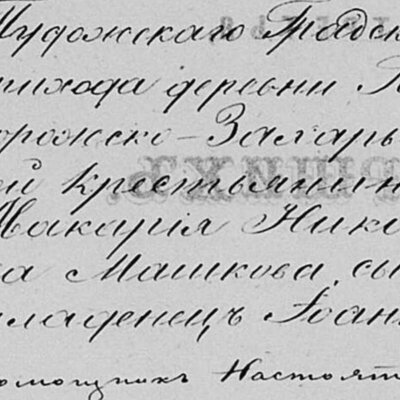 Пудожскаго Градск
прихода деревни
орожско-Заларь
ей крестьянин
Макарія Нико
ва Машкова, сы
младенецъ Іоан
омощникъ Настоят